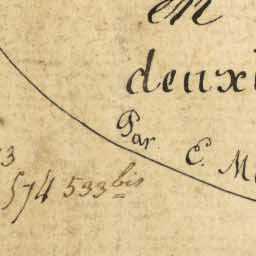 en
deuxi
Par E. M
3
574 533 bis